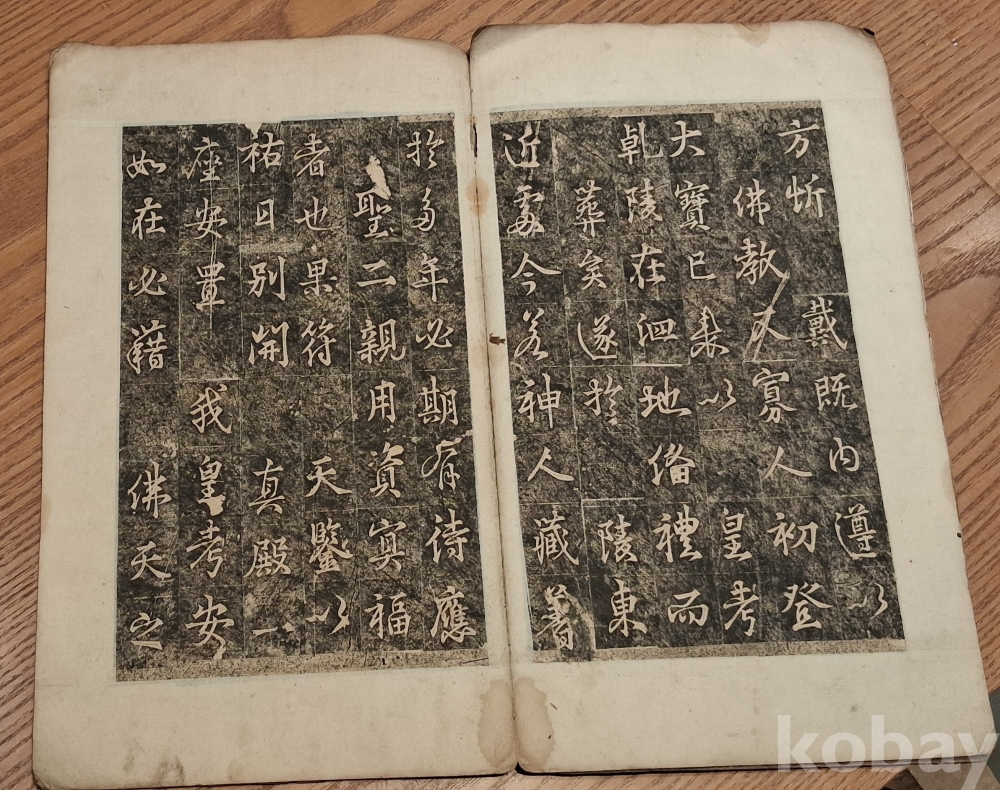 方忻戴既內遵以
佛教又寡人初登
大寶已來以皇考
乾陵在地備禮而
葬矣遂於陵東
近處今若神人藏著
於多年必期有待應
聖二親用資冥福
者也果符天鑒以
祐日別開真殿一
座安置我皇考安
如在必藉佛天之
kobay